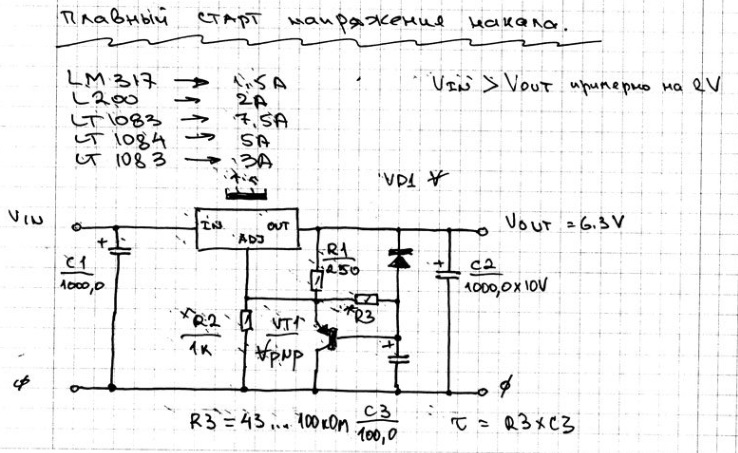 Плавный старт напряжения накала.
LM 317 → 1,5A
L200 → 2A
LT 1083 → 7,5A
LT 1084 → 5A
LT 1083 → 3A
VIN > VOUT примерно на 2V
VD1 ∀
VIN
IN OUT
ADJ
VOUT = 6.3V
+ C1
1000,0
R1
250
+ C2
1000,0x10V
*R3
*R2
1K
VT1
∀pnp
+
φ
φ
R3 = 43...100кОм C3
100,0
τ = R3xC3